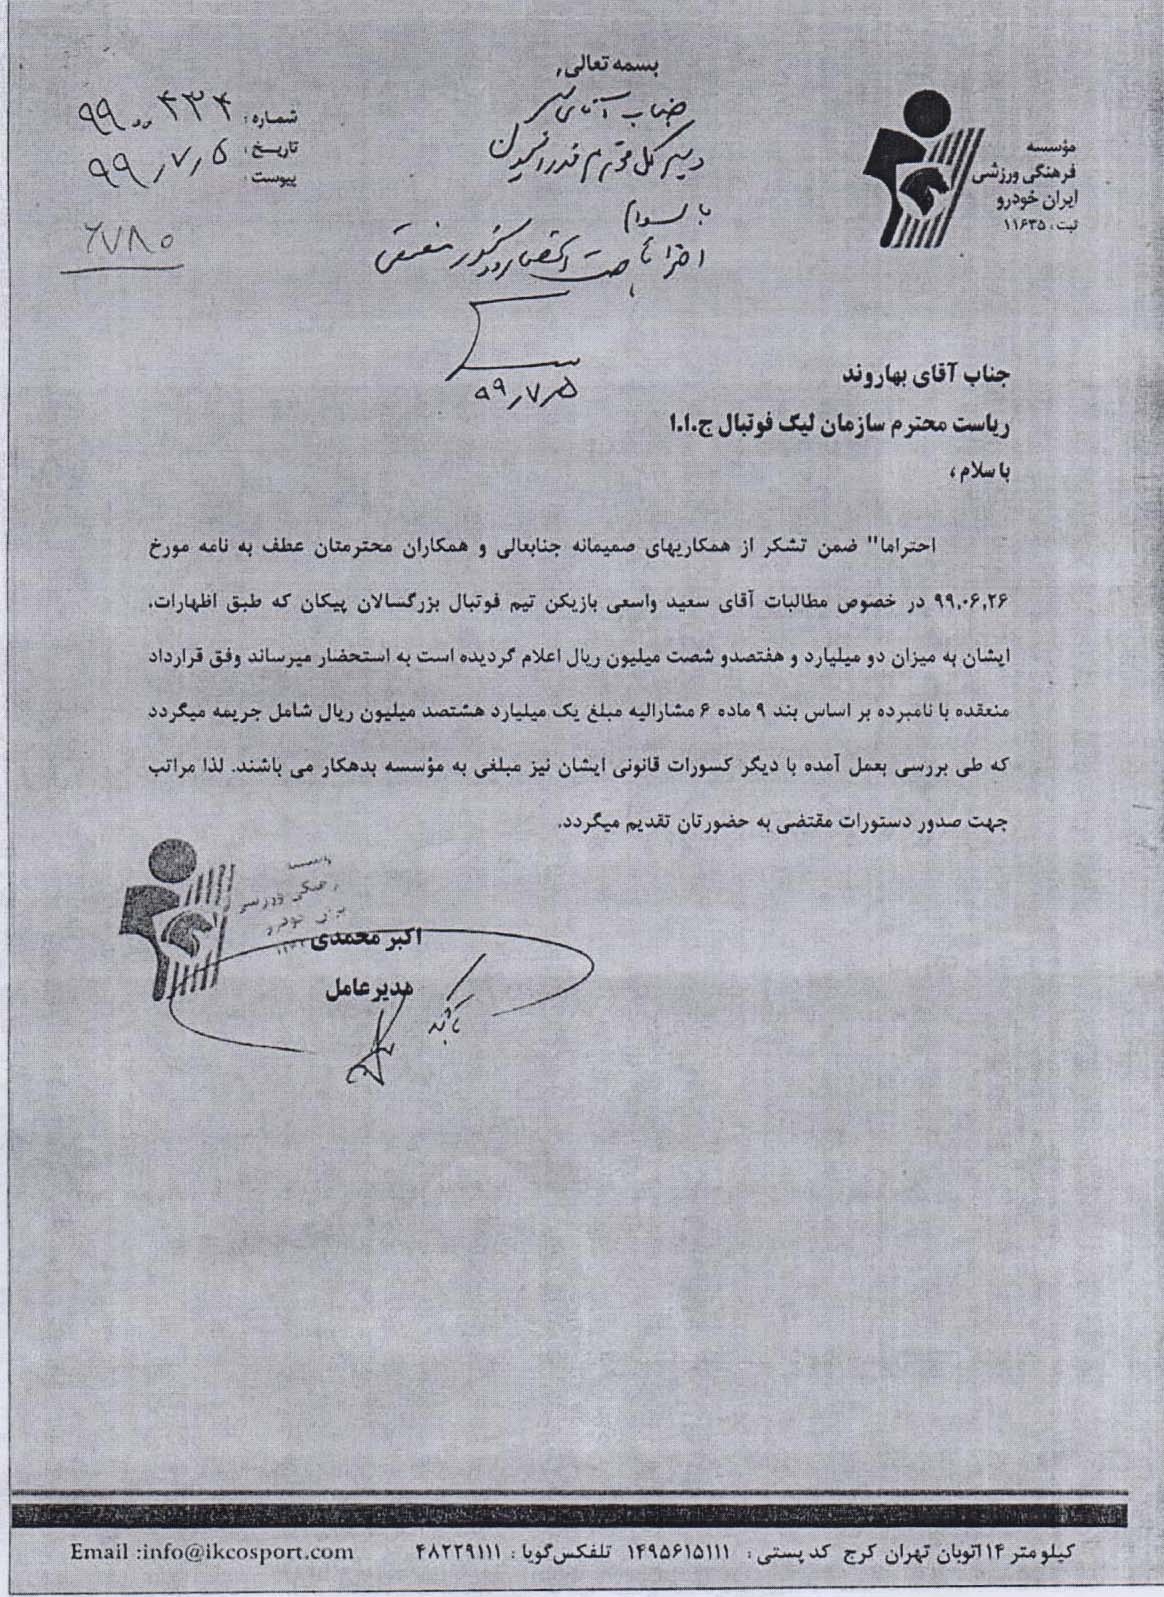 بسمه تعالی
مؤسسه
فرهنگی ورزشی
ایران خودرو
ثبت: ۱۱۶۳۵
شماره: ۹۹۰۰۴۳۴
تاریخ: ۹۹٫۷٫۵
پیوست:
۲۷۸۰
جناب آقای
دبیر کل محترم فدراسیون
با سلام
احتراماً جهت استحضار و دستور مقتضی
۹۹٫۷٫۵
جناب آقای بهاروند
ریاست محترم سازمان لیگ فوتبال ج.ا.ا
با سلام ،
احتراما" ضمن تشکر از همکاریهای صمیمانه جنابعالی و همکاران محترمتان عطف به نامه مورخ
۹۹,۰۶,۲۶ در خصوص مطالبات آقای سعید واسعی بازیکن تیم فوتبال بزرگسالان پیکان که طبق اظهارات،
ایشان به میزان دو میلیارد و هفتصدو شصت میلیون ریال اعلام گردیده است به استحضار میرساند وفق قرارداد
منعقده با نامبرده بر اساس بند ۹ ماده ۶ مشارالیه مبلغ یک میلیارد هشتصد میلیون ریال شامل جریمه میگردد
که طی بررسی بعمل آمده با دیگر کسورات قانونی ایشان نیز مبلغی به مؤسسه بدهکار می باشند. لذا مراتب
جهت صدور دستورات مقتضی به حضورتان تقدیم میگردد.
اکبر محمدی
مدیرعامل
کیلومتر ۱۴ اتوبان تهران کرج کد پستی : ۱۴۹۵۶۱۵۱۱۱ تلفکس گویا : ۴۸۲۲۹۱۱۱ Email :info@ikcosport.com